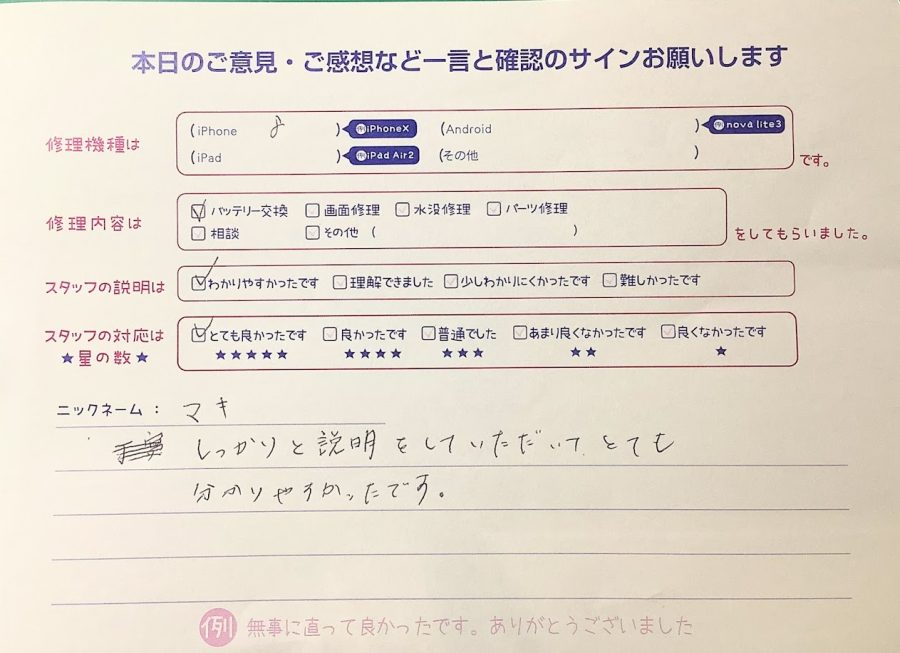 本日のご意見・ご感想など一言と確認のサインお願いします
修理機種は
(iPhone 8 ) 例iPhoneX (Android ) 例nova lite3
(iPad ) 例iPad Air2 (その他 ) です。
修理内容は
バッテリー交換 画面修理 水没修理 パーツ修理
相談 その他 ( ) をしてもらいました。
スタッフの説明は わかりやすかったです 理解できました 少しわかりにくかったです 難しかったです
スタッフの対応は とても良かったです 良かったです 普通でした あまり良くなかったです 良くなかったです
★星の数★ ★★★★★ ★★★★ ★★★ ★★ ★
ニックネーム： マキ
しっかりと説明をしていただいて、とても
分かりやすかったです。
例 無事に直って良かったです。ありがとうございました